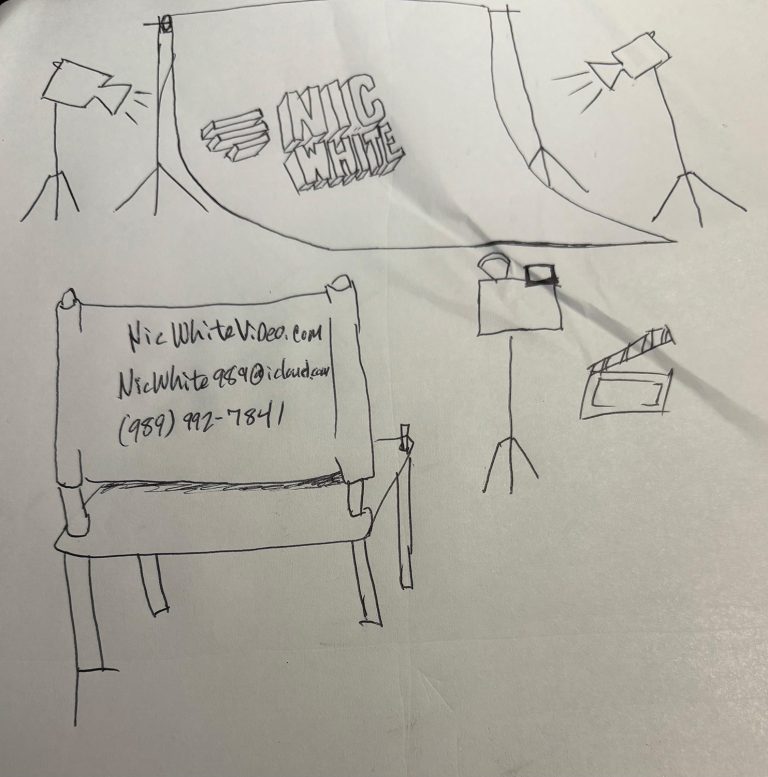 NIC
WHITE
NicWhiteVideo.com
NicWhite989@icloud.com
(989) 992-7841